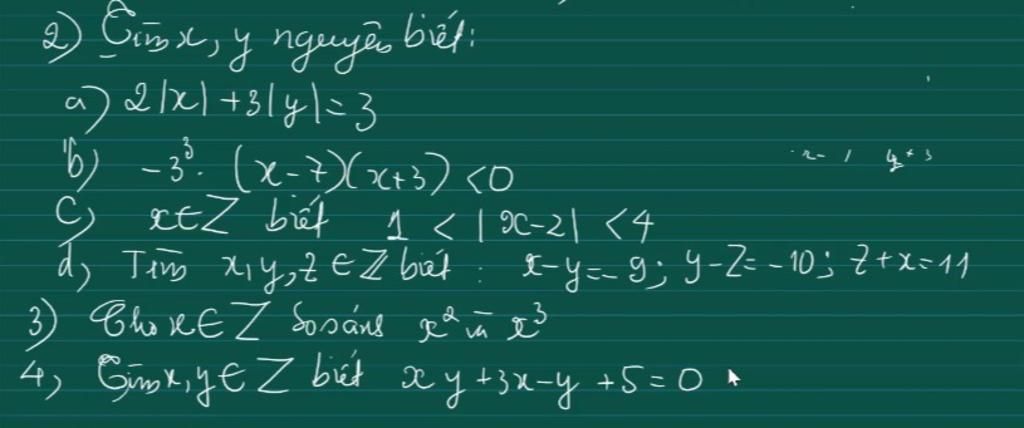 2) Tìm x, y nguyên biết:
a) 2|x| + 3|y| = 3
b) -3³. (x-7)(x+3) < 0
c) x ∈ Z biết 1 < |x-2| < 4
d) Tìm x, y, z ∈ Z biết: x-y = -9; y-z = -10; z+x = 11
3) Cho x ∈ Z so sánh x² và x³
4) Tìm x, y ∈ Z biết xy + 3x - y + 5 = 0